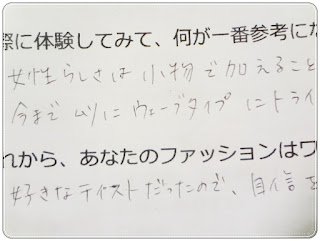 際に体験してみて、何が一番参考にな
女性らしさは小物で加えること
今まで 以にウェーブタイプ にトライ
れから、あなたのファッションはワ
好きなテイストだったので、自信を